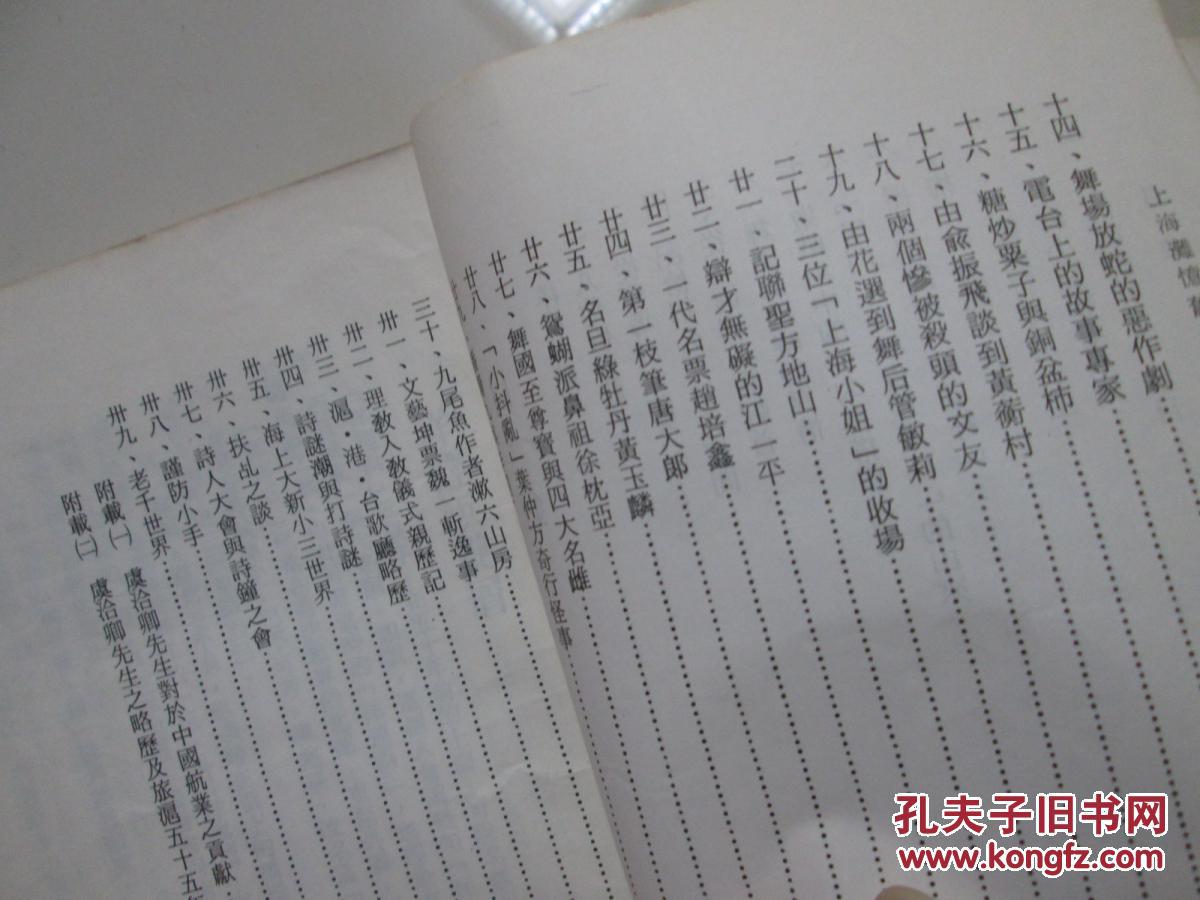 上海灘憶
十四、舞場放蛇的惡作劇
十五、電台上的故事專家
十六、糖炒粟子與銅盆柿
十七、由俞振飛談到黃蘅村
十八、兩個慘被殺頭的文友
十九、由花選到舞后管敏莉
二十、三位「上海小姐」的收場
廿一、記聯聖方地山
廿二、辯才無礙的江一平
廿三、一代名票趙培鑫
廿四、第一枝筆唐大郎
廿五、名旦綠牡丹黃玉麟
廿六、鴛蝴派鼻祖徐枕亞
廿七、舞國至尊寶與四大名雌
廿八、「小抖亂」葉仲方奇行怪事
三十、九尾魚作者漱六山房
卅一、文藝坤票魏一斬逸事
卅二、理教入教儀式親歷記
卅三、滬・港・台歌廳略歷
卅四、詩謎潮與打詩謎
卅五、海上大新小三世界
卅六、扶乩之談
卅七、詩人大會與詩鐘之會
卅八、謹防小手
卅九、老千世界
附載㈠ 虞洽卿先生對於中國航業之貢獻
附載㈡ 虞洽卿先生之略歷及旅滬五十五年
孔夫子旧书网
www.kongfz.com